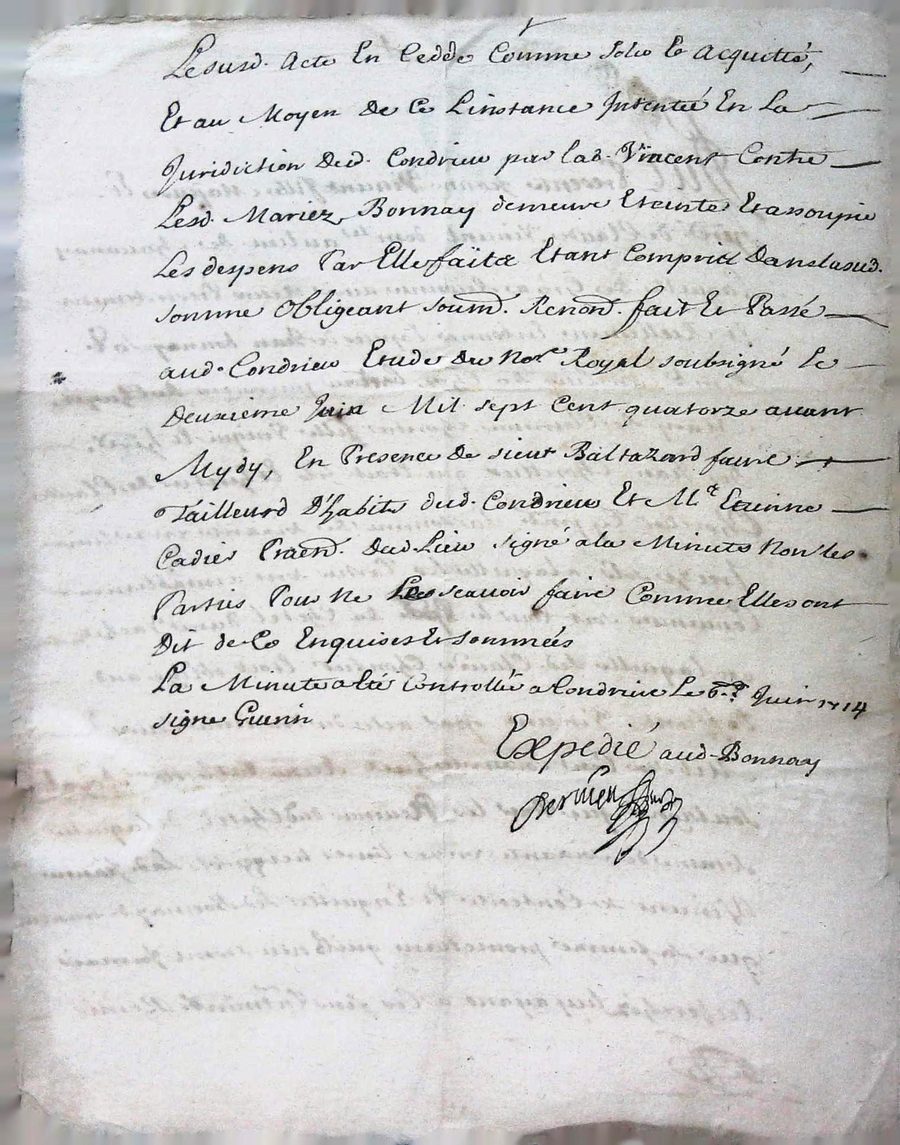 Lesusd. Acte En Cedde Comme solu Et Acquitté,
Et au Moyen De Ce Linstance Intentée En La
Juridiction Dud. Condrieu par lad. Vincent Contre
Lesd. Mariez Bonnay demeure Eteinte Et assoupie
Les despens Par Elle faite Etant Compris Danslasud.
somme Obligeant soumd. Renond. fait Et Passé
aud. Condrieu Etude Du No.re Royal soubsigné Le
Deuxième Juin Mil sept Cent quatorze avant
Mydy, En Presence De sieur Baltazard faure
Tailleurd D'habits dud. Condrieu Et M.e Etienne
Praend. Dud. Lieu signé a la Minute Non les
Parties Pour Ne Le scavoir faire Comme Elles ont
Dit de Ce Enquises Et sommées
La Minute a Eté Controllée a Condrieu Le 6.e Juin 1714
signe Guerin
Expedié aud. Bonnay